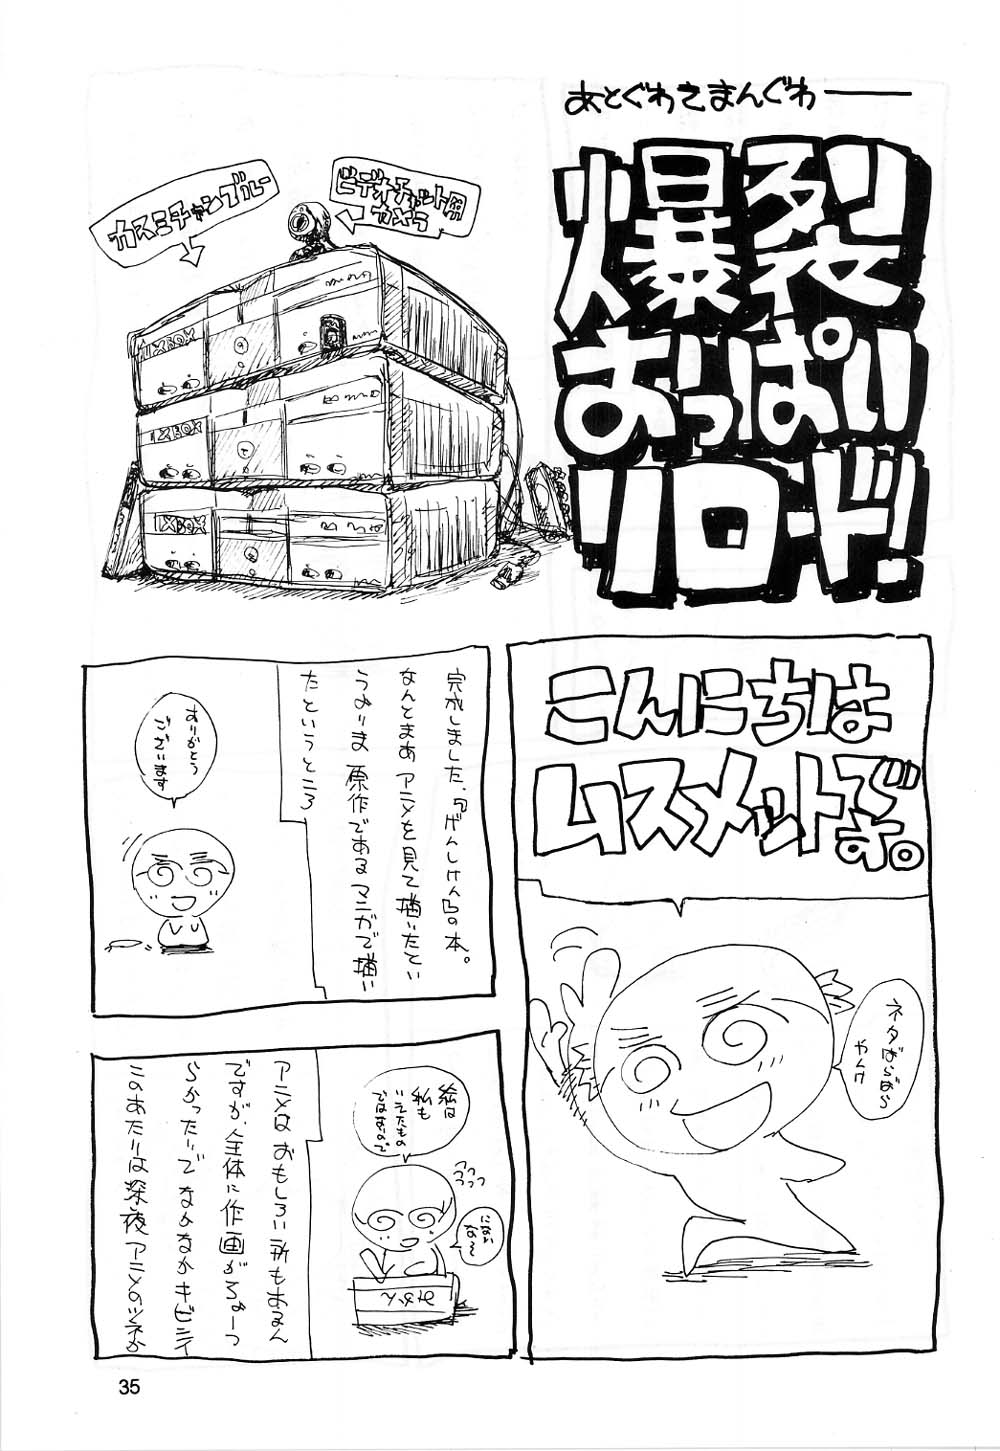 あとぐわきまんぐわ――
爆裂
おっぱい
リロード!
ビデオチャット用
カメラ
カスミチャンブルー
XBOX
XBOX
XBOX
こんにちは
ムスメットです。
ネタばらばら
やんけ
完成しました、『げんしけん』の本。
なんとまあ アニメを見て描いたてい
うよりま 原作であるマンガで描い
たというところ
ありがとう
ございます
絵は
私も
いえたもの
ではないので
にない
な〜
みかん
アニメは おもしろい所もあるん
ですが、全体に作画がちょーっ
らかったりで なかなかキビシイ
このあたりは深夜アニメのツネか
35